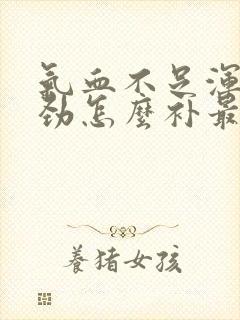 氣血不足渾
勁怎麼补最
養猪女孩